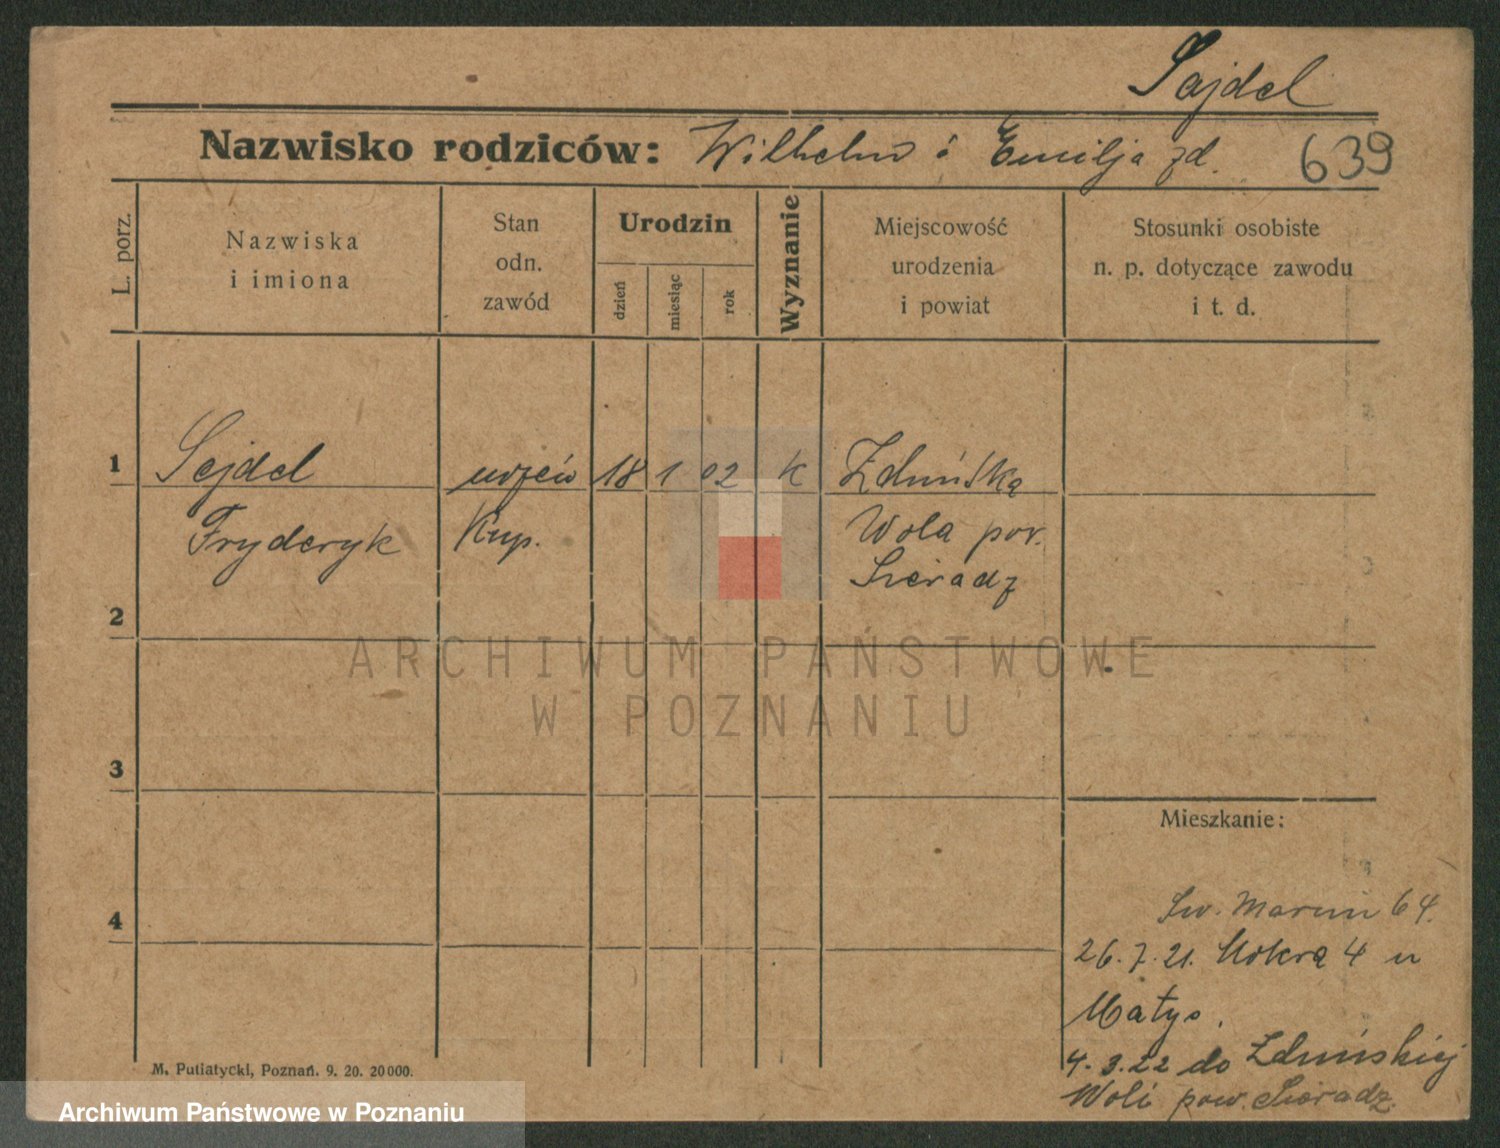 Sajdel
Nazwisko rodziców: Wilhelm i Emilja zd.
639
L. porz.
Nazwiska
i imiona
Stan
odn.
zawód
Urodzin
dzień
miesiąc
rok
Wyznanie
Miejscowość
urodzenia
i powiat
Stosunki osobiste
n. p. dotyczące zawodu
i t. d.
1
Sejdel uczeń 18 1 02 k Zduńska
Fryderyk Kup. Wola pow.
Sieradz
2
ARCHIWUM PAŃSTWOWE
W POZNANIU
3
Mieszkanie:
4
Św. Marcin 64.
26.7.21. Mokra 4 u
Matys.
4.3.22 do Zduńskiej
Woli pow. Sieradz.
M. Putiatycki, Poznań. 9. 20. 20000.
Archiwum Państwowe w Poznaniu